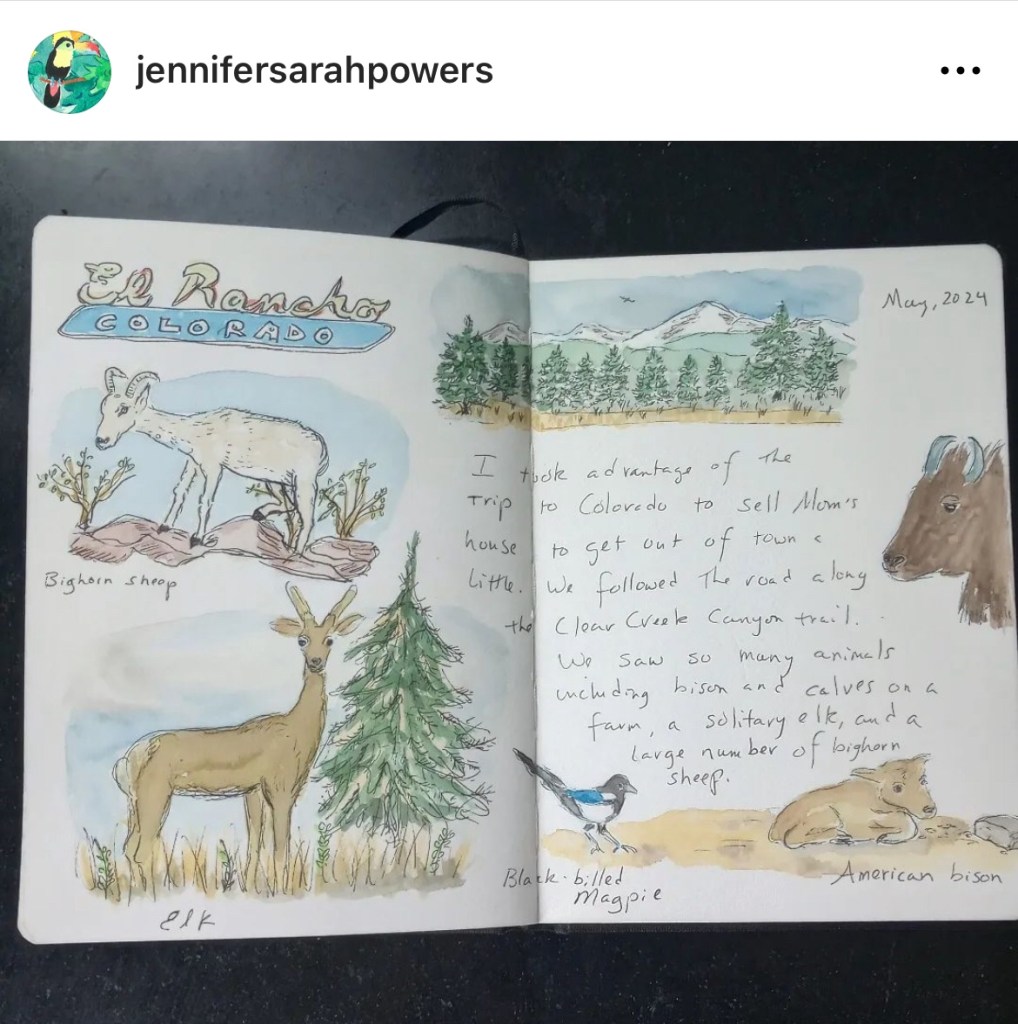 jennifersarahpowers
El Rancho
COLORADO
May, 2024
I took advantage of the
trip to Colorado to sell Mom's
house to get out of town a
little. We followed the road along
the Clear Creek Canyon trail.
We saw so many animals
including bison and calves on a
farm, a solitary elk, and a
large number of bighorn
sheep.
Bighorn sheep
Elk
Black-billed
Magpie
American bison